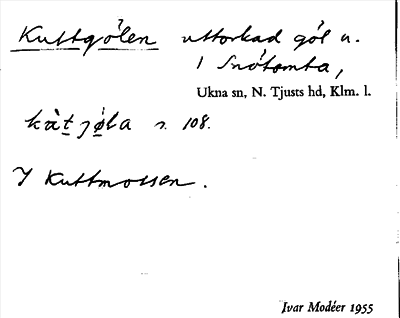 Kuttgölen uttorkad göl u.
1 Snötomta,
Ukna sn, N. Tjusts hd, Klm. l.
kàtjøla s. 108.
I Kuttmossen.
Ivar Modéer 1955